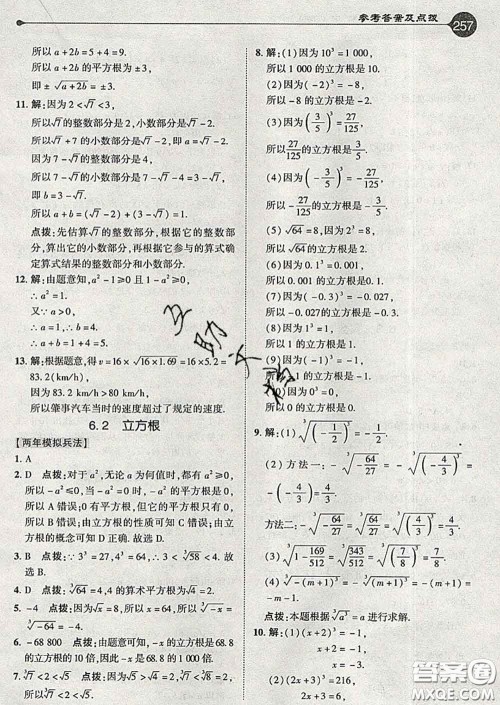 参考答案及点拨
257
所以 a+2b=5+4=9.
所以 a+2b 的平方根为±3,
即 ±√(a+2b)=±3.
11. 解:因为 2<√7<3,
所以√7的整数部分是2,小数部分是√7-2.
所以√7+7的小数部分是 a=√7-2.
因为 7-√7 的整数部分是4,
所以 7-√7 的小数部分是 b=7-√7-4=3-√7.
所以 a+b=(√7-2)+(3-√7)=1.
点拨:先估算√7的整数部分,根据它的整数部分,算出它的小数部分,再根据它参与的算式确定算式结果的整数部分和小数部分.
12. 解:由题意知,a²-1≥0且1-a²≥0.
∴a²=1.
又∵a>0,
∴a=1.
∴b=8.
13. 解:根据题意,得 v=16×√(16×1.69)=16×5.2=
83.2(km/h),
因为 83.2 km/h>80 km/h,
所以肇事汽车当时的速度超过了规定的速度.
6.2 立方根
【两年模拟兵法】
1. A
2. D 点拨:对于 a²,无论 a 为何值时,都有 a²≥0,
所以 -a²≤0. 当 a=0 时,-a² 的平方根是0;
所以 A 错误;0有平方根,是0,所以 B 错误;
由立方根的性质可知 C 错误;由立方根的概念可知 D 正确.故选 D.
3. B 点拨:∵3³=27,4³=64,∴3<³√58<4.
故选 B.
4. D 点拨:³√64=4,4的算术平方根为2.
5. -4 点拨:由√x=8,所以 x=64,所以³√(-x)=
³√(-64)=-4.
6. -68 800 点拨:由题意可知,-y的立方根为x
的立方根的10倍,因此 -y=68.8的1 000倍.
7. ³√7<2<√5. 点拨:因为 1<³√7<2,2<√5<3,
所以³√7<2<√5.
8. 解:(1)因为 10³=1 000,
所以1 000的立方根是10.
(2)因为(-2)³=-8,
所以-8的立方根是-2.
(3)因为(3/5)³=27/125,
所以27/125的立方根是3/5.
(4)因为(-3/5)³=-27/125,
所以-27/125的立方根是-3/5.
(5)√64=8,因为2³=8,
所以√64的立方根是2.
(6)因为(-0.3)³=-0.027,
所以-0.027的立方根是-0.3.
(7)因为(-1)³=-1,
所以-1的立方根是-1.
(9)因为1³=1,
所以1的立方根是1.
因为0³=0,
9. 解:(1)³√((-1/2)³)=-1/2.
(2)方法一:³√(-64/27)=³√((-4/3)³)=
-4/3.
方法二:³√(-64/27)=-³√(64/27)=-4/3.
(3)³√(1-169/512)=³√(343/512)=³√((7/8)³)=7/8.
(4)³√(-(m+1)³)=-(m+1).
点拨:本题根据³√(a³)=a进行求解.
10. 解:(1)(x+2)³=-1,
x+2=-1,
x=-3.
(2)(2x+3)³=216,
2x+3=6,
互助文档
答案圈
MXQE.COM